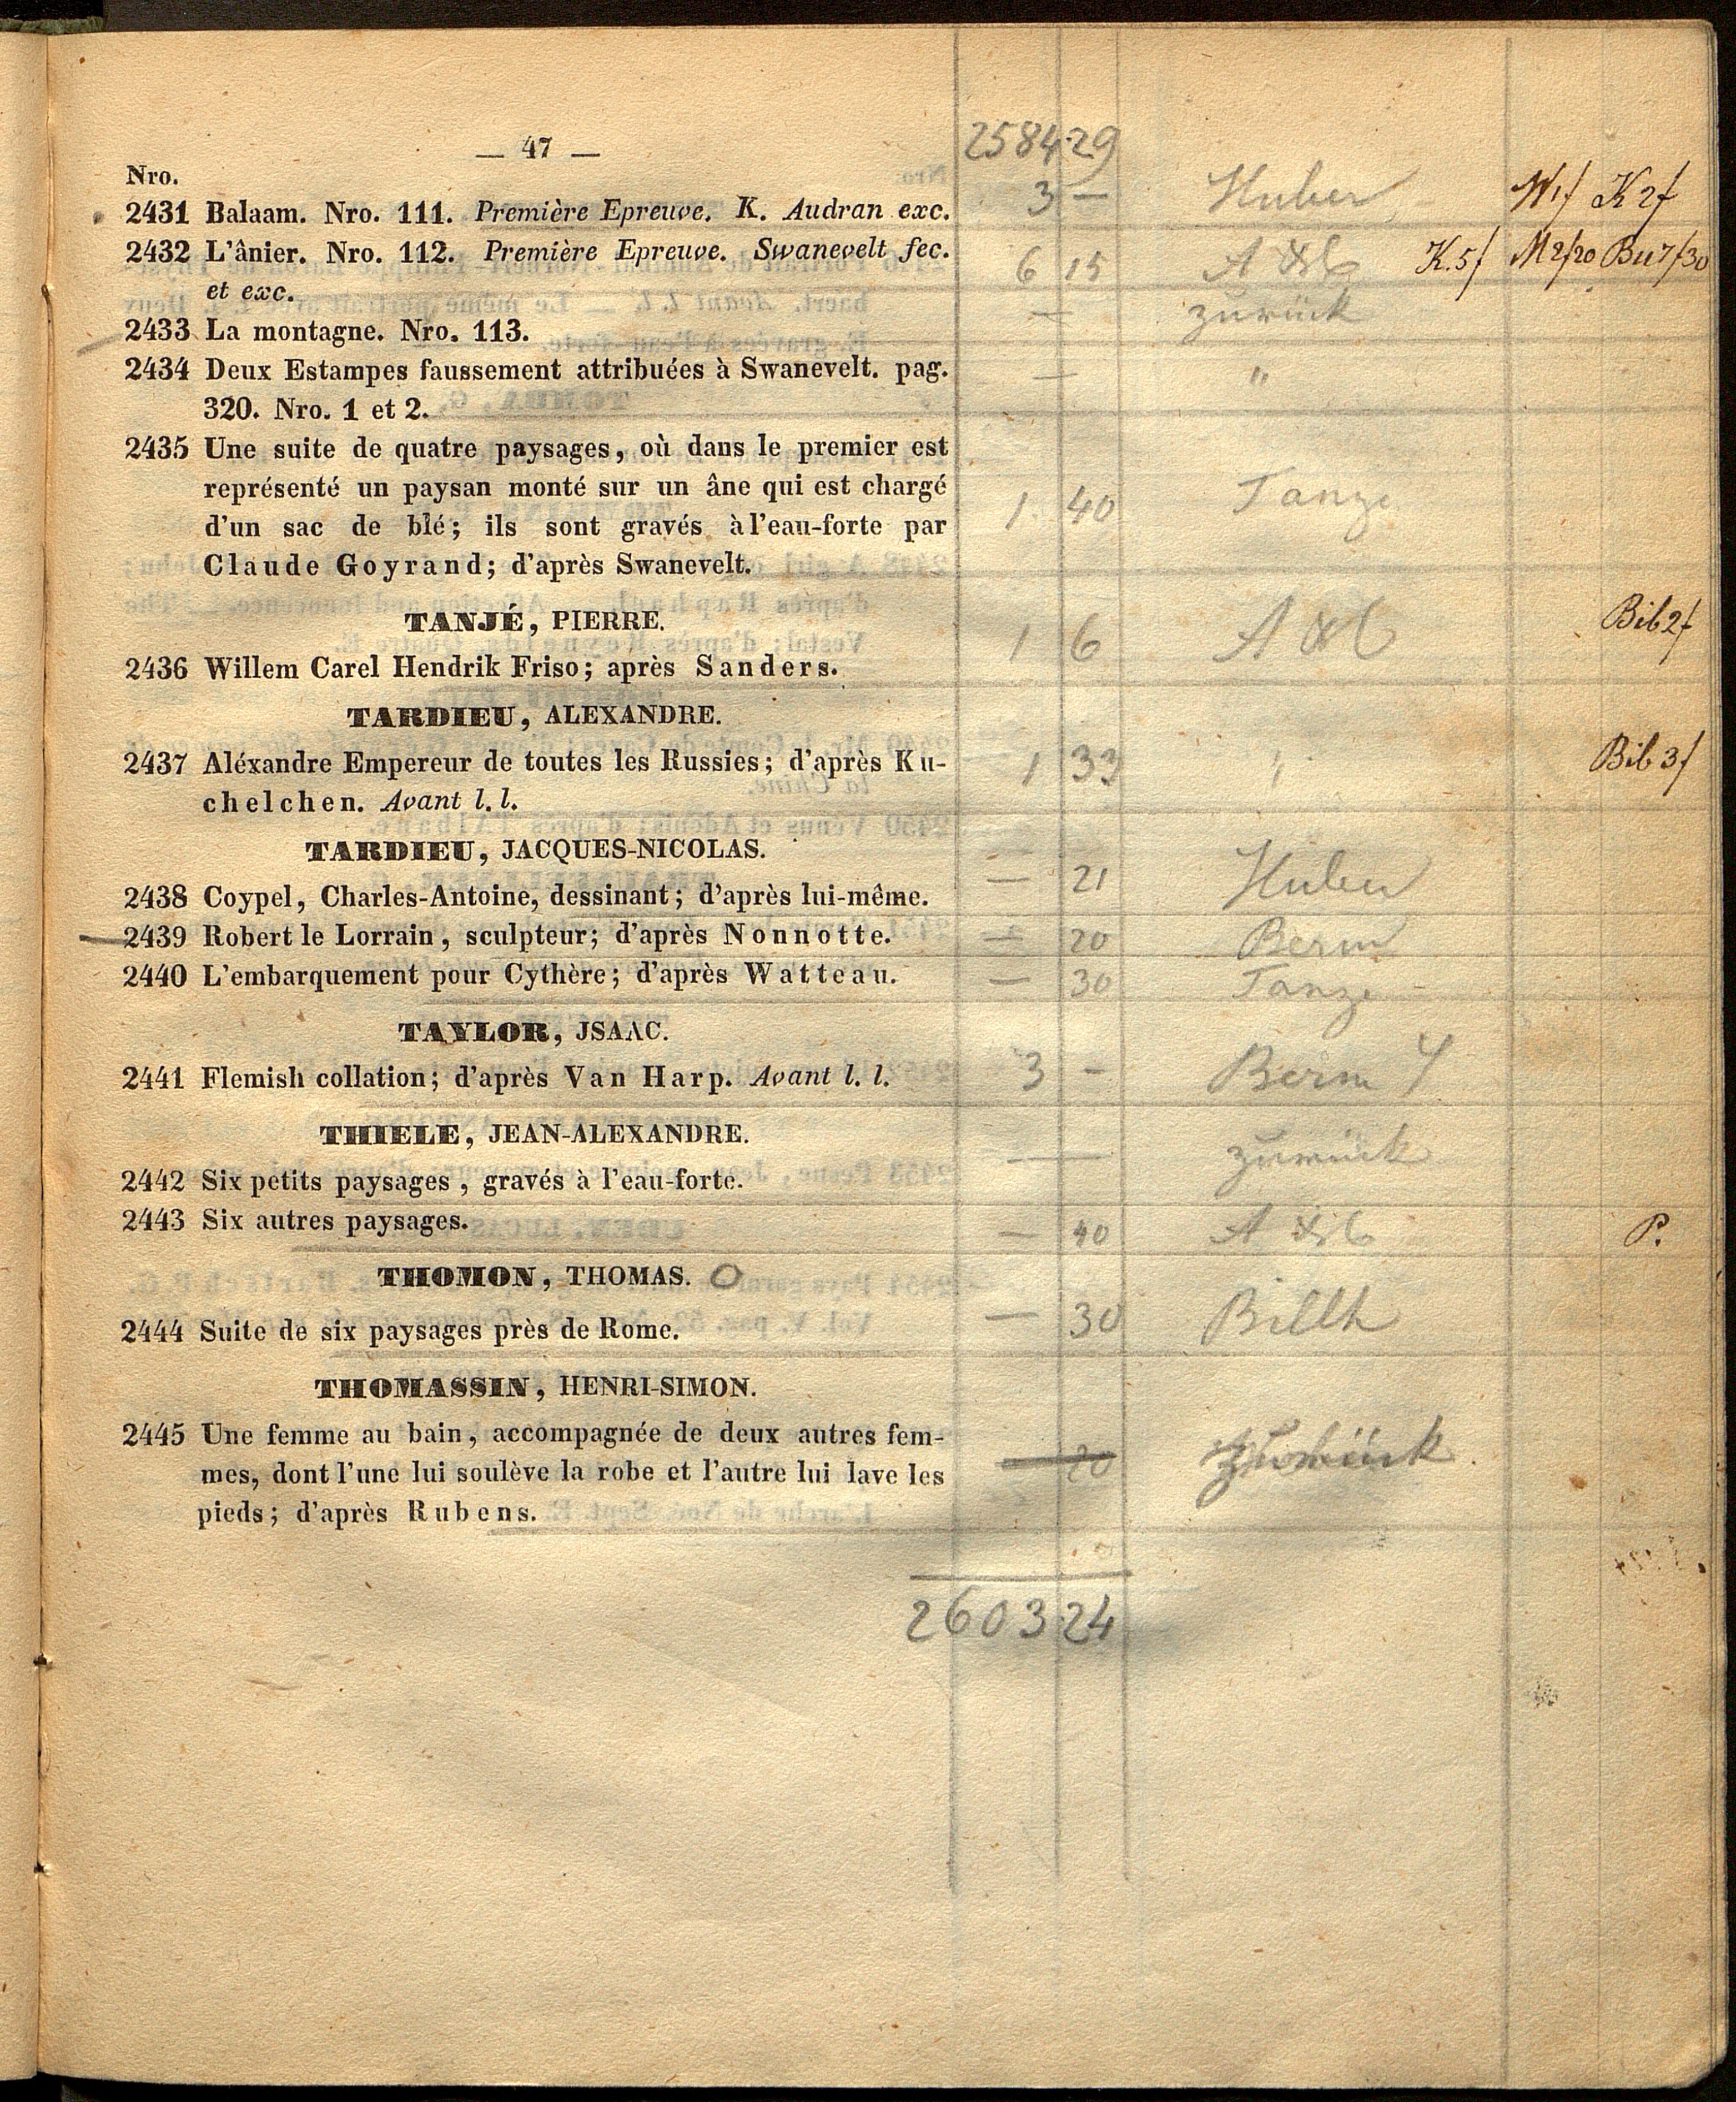 — 47 —
2584 29
Nro.
2431 Balaam. Nro. 111. Première Epreuve. K. Audran exc. 3 — Huber W1f K 2f
2432 L'ânier. Nro. 112. Première Epreuve. Swanevelt fec. 6 15 K.5f M2/20 Bu7/30
et exc.
2433 La montagne. Nro. 113. — zurück
2434 Deux Estampes faussement attribuées à Swanevelt. pag. — "
320. Nro. 1 et 2.
2435 Une suite de quatre paysages, où dans le premier est
représenté un paysan monté sur un âne qui est chargé 1 40 Tanze
d'un sac de blé; ils sont gravés à l'eau-forte par
Claude Goyrand; d'après Swanevelt.
TANJÉ, PIERRE. Bib 2f
2436 Willem Carel Hendrik Friso; après Sanders. 1 6
TARDIEU, ALEXANDRE.
2437 Aléxandre Empereur de toutes les Russies; d'après Ku- 1 33 Bib 3f
chelchen. Avant l. l.
TARDIEU, JACQUES-NICOLAS.
2438 Coypel, Charles-Antoine, dessinant; d'après lui-même. — 21 Huber
2439 Robert le Lorrain, sculpteur; d'après Nonnotte. — 20 Berm
2440 L'embarquement pour Cythère; d'après Watteau. — 30 Tanze
TAYLOR, JSAAC.
2441 Flemish collation; d'après Van Harp. Avant l. l. 3 — Berm
THIELE, JEAN-ALEXANDRE.
2442 Six petits paysages, gravés à l'eau-forte. — zurück
2443 Six autres paysages. — 40 P.
THOMON, THOMAS. O
2444 Suite de six paysages près de Rome. — 30 Billh
THOMASSIN, HENRI-SIMON.
2445 Une femme au bain, accompagnée de deux autres fem-
mes, dont l'une lui soulève la robe et l'autre lui lave les — 20 zurück
pieds; d'après Rubens.
2603 24